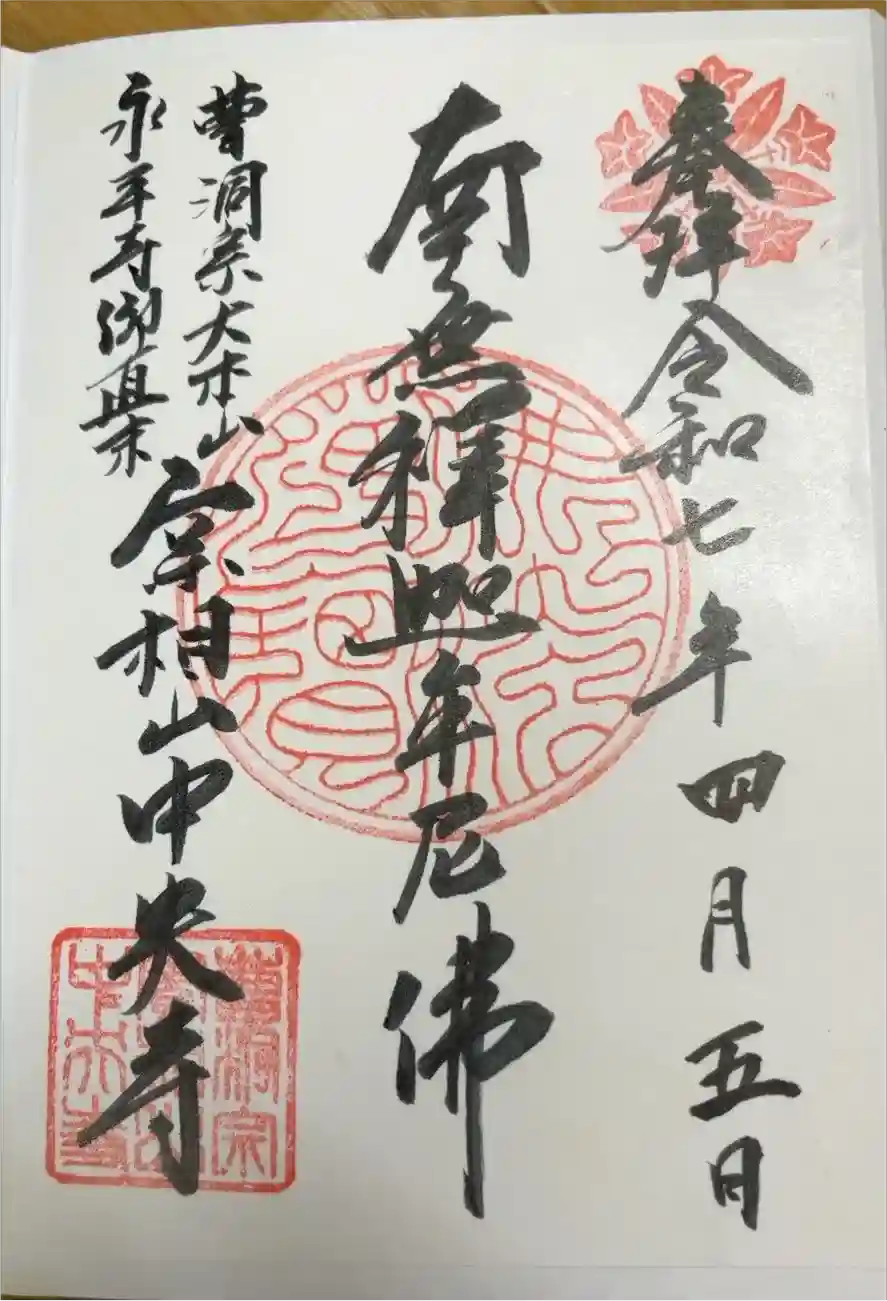 奉拝 令和七年四月五日
南無釋迦牟尼佛
曹洞宗大本山
永平寺御直末
宗相山中央寺
曹洞宗
中央寺